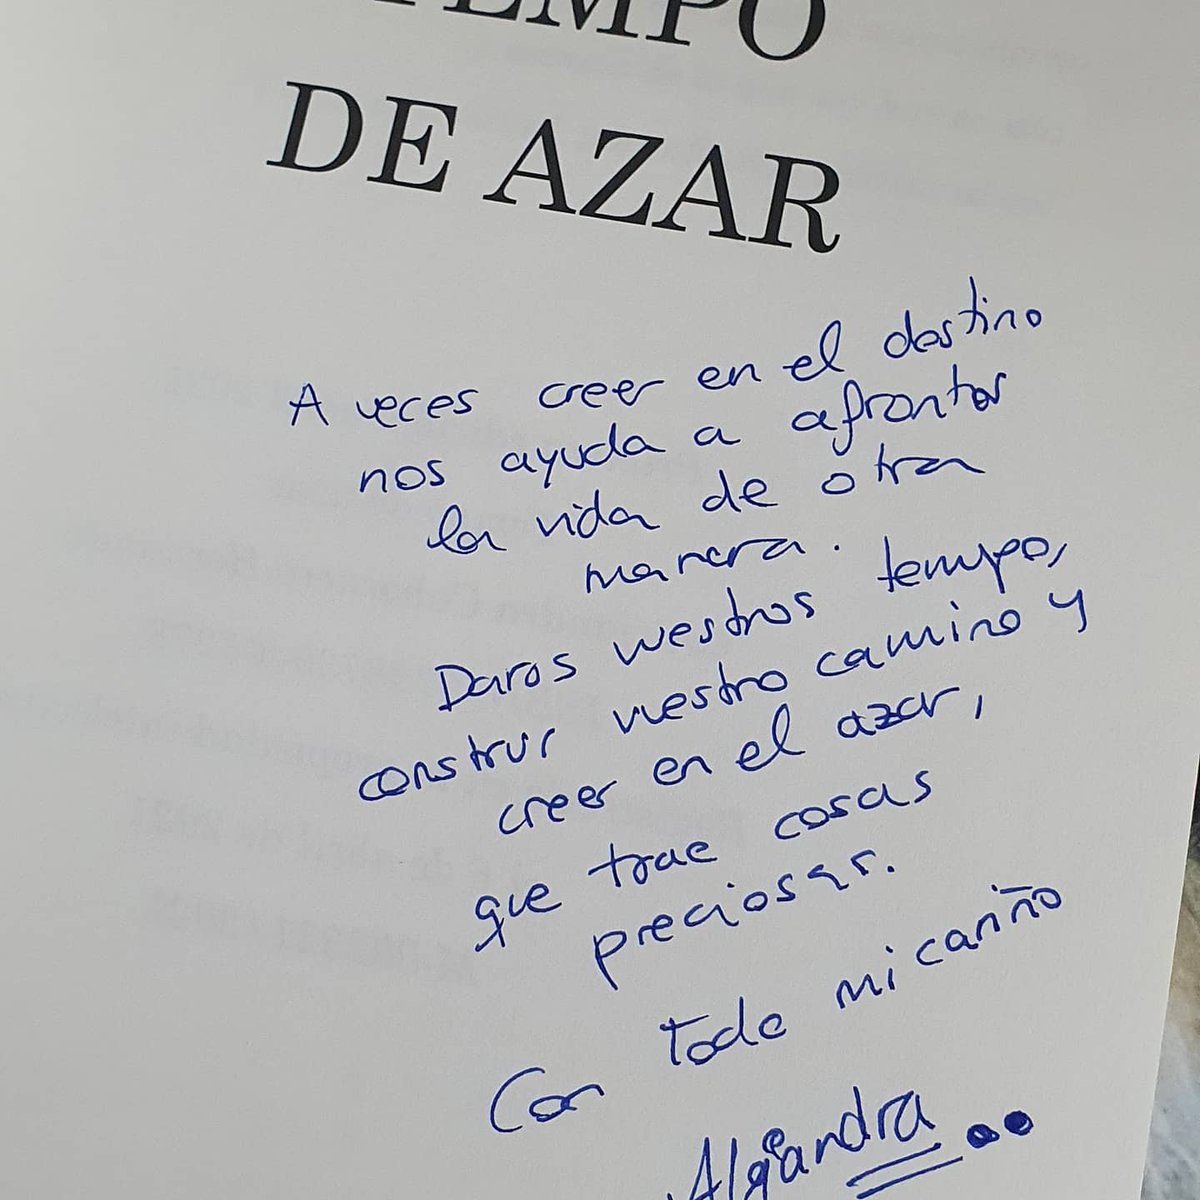 TEMPO
DE AZAR
A veces creer en el destino
nos ayuda a afrontar
la vida de otra
manera.
Daros vuestros tempo,
construir vuestro camino y
creer en el azar,
que trae cosas
preciosas.
Con todo mi cariño
Alejandra